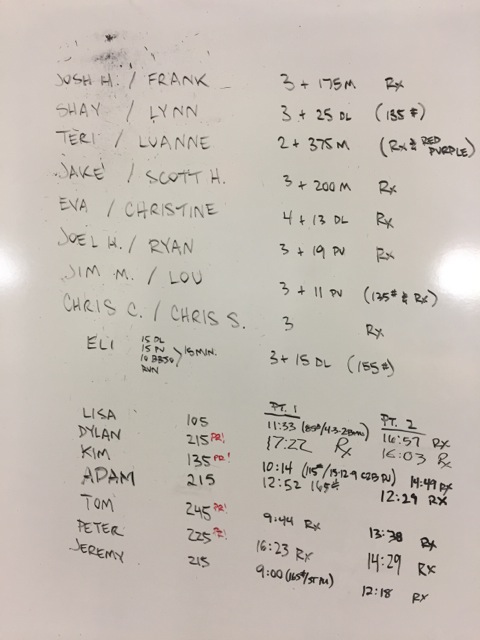 JOSH H. / FRANK 3 + 175M Rx
SHAY / LYNN 3 + 25 DL (135#)
TERI / LUANNE 2 + 375M (Rx & RED PURPLE)
JAKE / SCOTT H. 3 + 200M Rx
EVA / CHRISTINE 4 + 13 DL Rx
JOEL H. / RYAN 3 + 19 PU Rx
JIM M. / LOU 3 + 11 PU (135# & Rx)
CHRIS C. / CHRIS S. 3 Rx
ELI 3 + 15 DL (155#)
15 DL
15 PU
15 MIN.
RUN
PT. 1 PT. 2
LISA 105 11:33 16:57 Rx
DYLAN 215 PR! 17:22 Rx 16:03 Rx
KIM 135 PR! 10:14 14:49 Rx
ADAM 215 12:52 165# 12:29 Rx
TOM 245 PR! 9:44 Rx 13:38 Rx
PETER 225 PR! 16:23 Rx 14:29 Rx
JEREMY 215 9:00 12:18 Rx